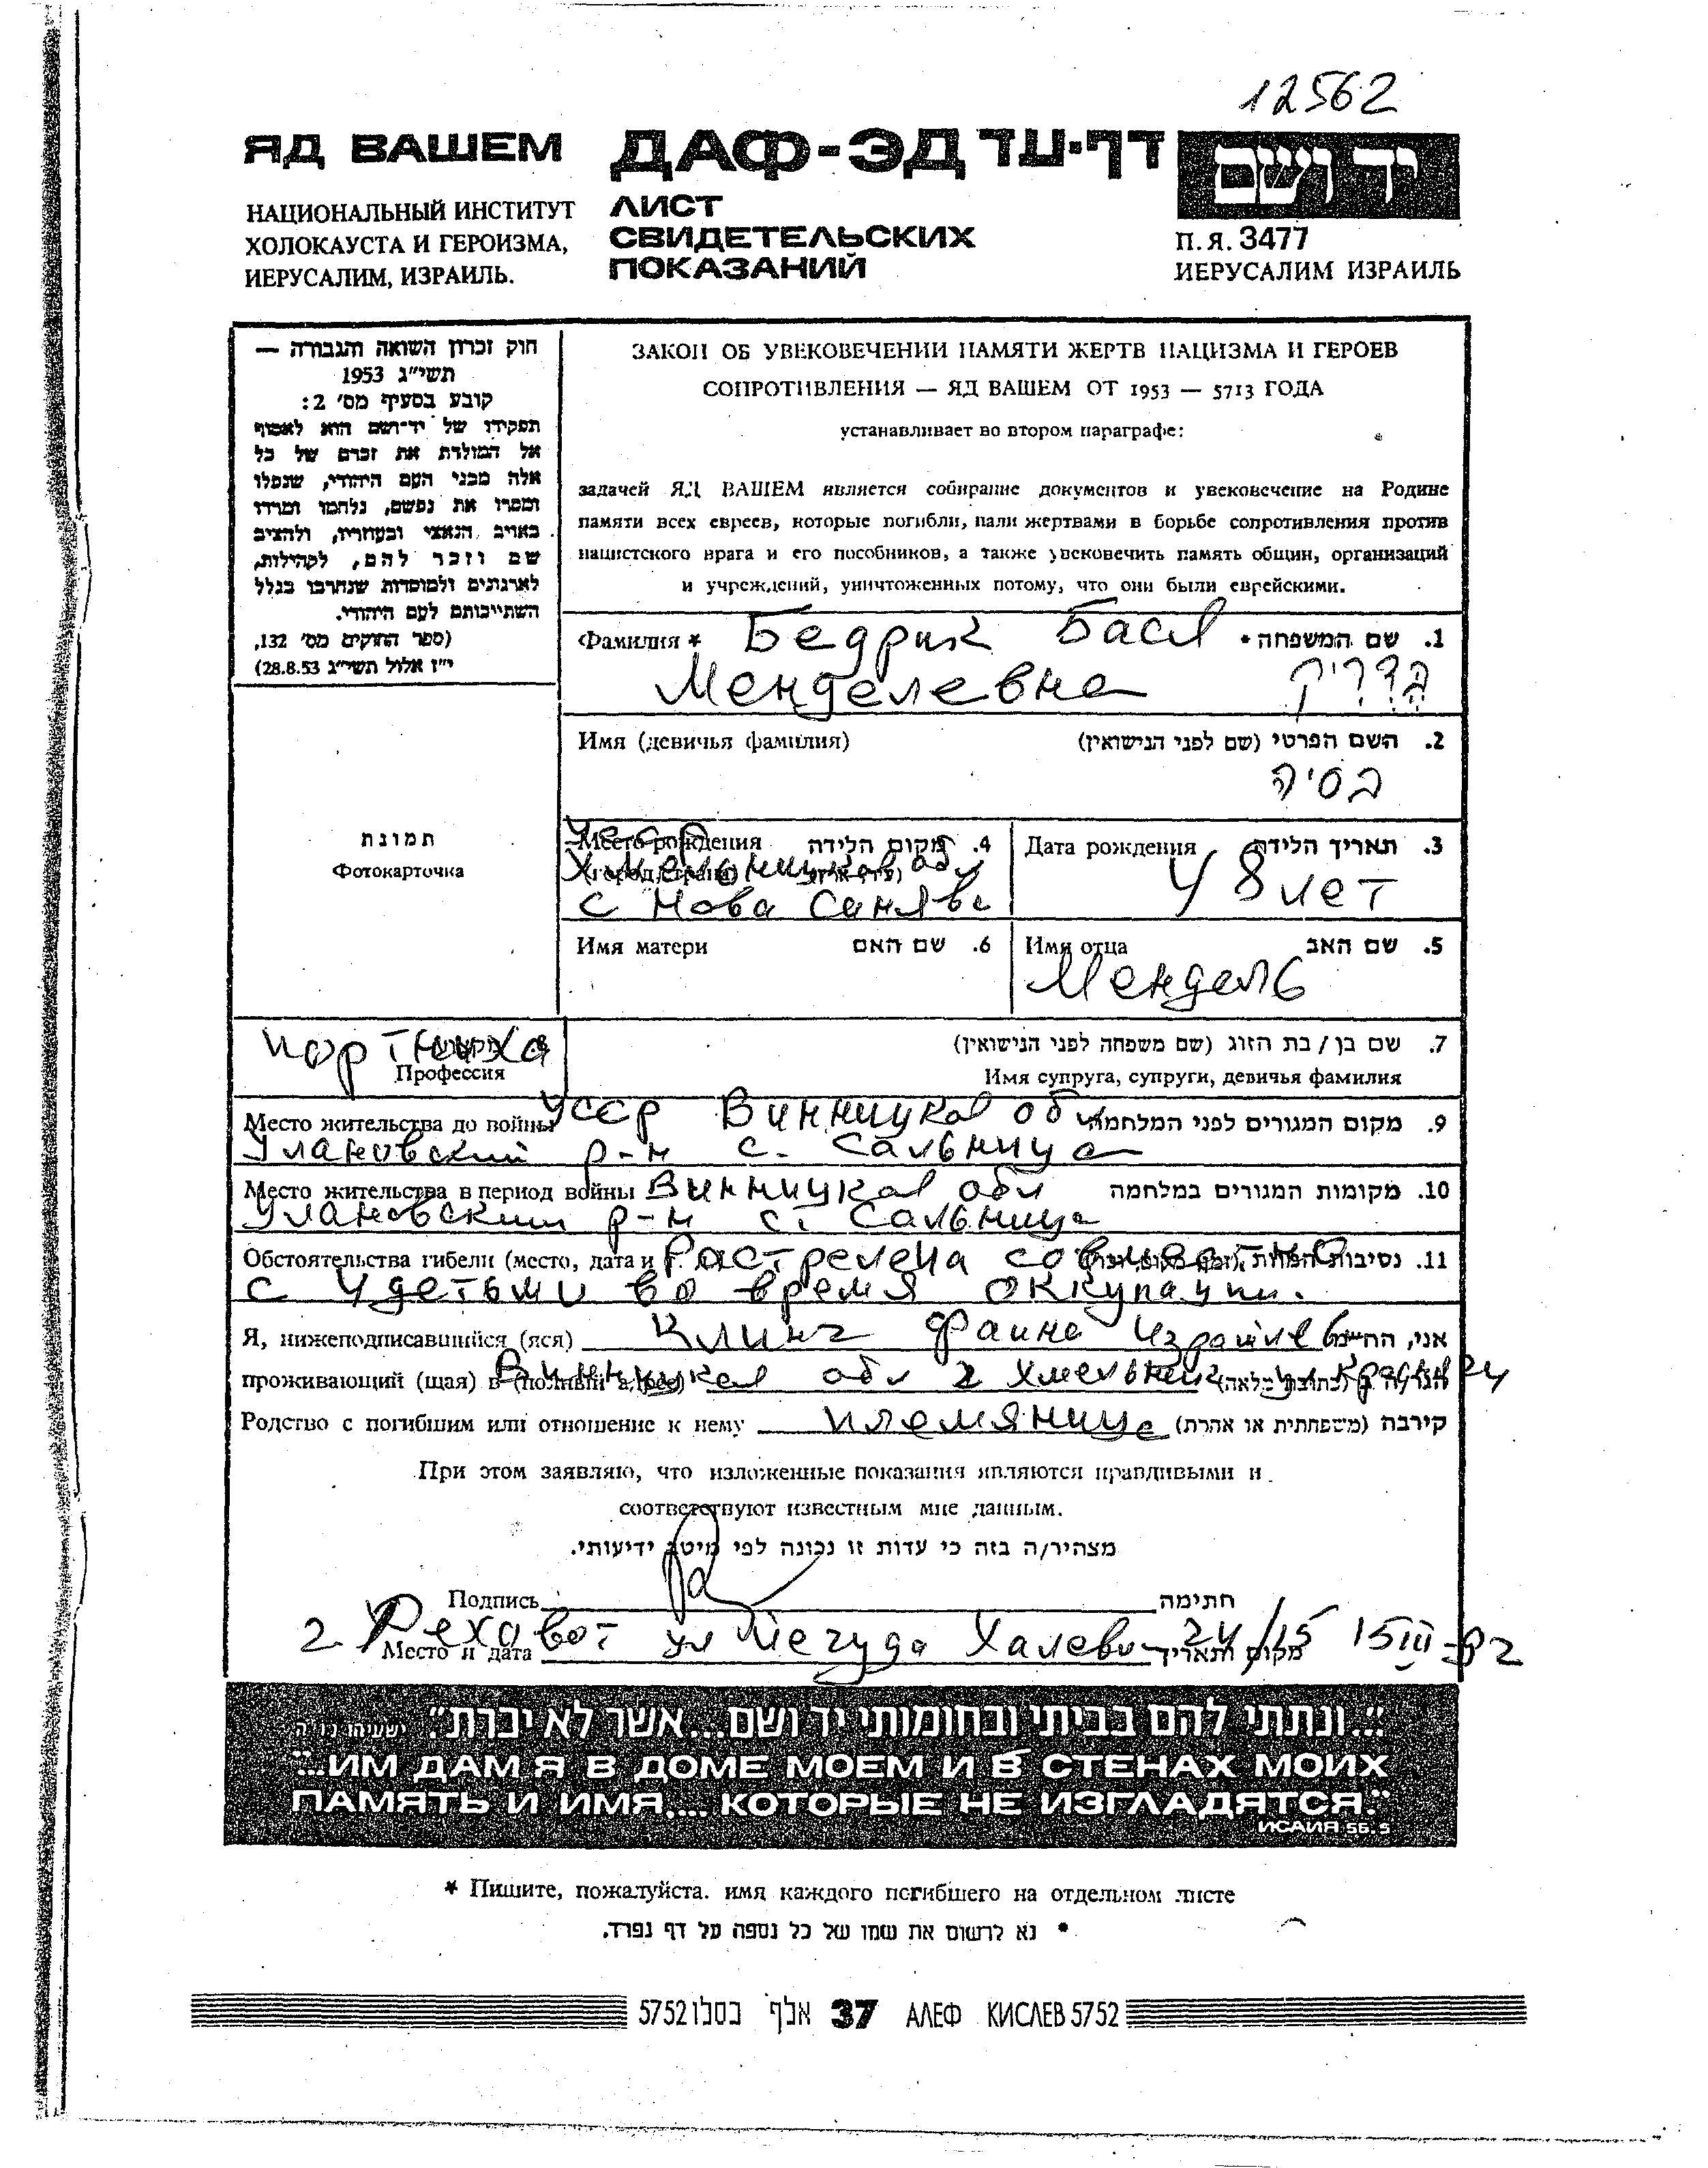 12562
ЯД ВАШЕМ ДАФ-ЭД דף-עד יד ושם
НАЦИОНАЛЬНЫЙ ИНСТИТУТ
ХОЛОКАУСТА И ГЕРОИЗМА,
ИЕРУСАЛИМ, ИЗРАИЛЬ.
ЛИСТ
СВИДЕТЕЛЬСКИХ
ПОКАЗАНИЙ
П.Я. 3477
ИЕРУСАЛИМ ИЗРАИЛЬ
חוק זכרון השואה והגבורה —
תשי"ג 1953
קובע בסעיף מס' 2:
תפקידו של יד-ושם הוא לאסוף
אל המולדת את זכרם של כל
אלה מבני העם היהודי, שנפלו
ומסרו את נפשם, נלחמו ומרדו
באויב הנאצי ובעוזריו, ולהציב
שם וזכר להם, לקהילות,
לארגונים ולמוסדות שנחרבו בגלל
השתייכותם לעם היהודי.
(ספר החוקים מס' 132,
י"ז אלול תשי"ג 28.8.53)
ЗАКОН ОБ УВЕКОВЕЧЕНИИ ПАМЯТИ ЖЕРТВ НАЦИЗМА И ГЕРОЕВ
СОПРОТИВЛЕНИЯ — ЯД ВАШЕМ ОТ 1953 — 5713 ГОДА
устанавливает во втором параграфе:
задачей ЯД ВАШЕМ является собирание документов и увековечение на Родине
памяти всех евреев, которые погибли, пали жертвами в борьбе сопротивления против
нацистского врага и его пособников, а также увековечить память общин, организаций
и учреждений, уничтоженных потому, что они были еврейскими.
Фамилия * Бедрик Бася 1. שם המשפחה •
Менделевна בדריק
Имя (девичья фамилия) 2. השם הפרטי (שם לפני הנישואין)
בסיה
תמונת
Фотокарточка
Место рождения 4. מקום הלידה
(город, страна) Хмельницкая обл
с Нова Синява
Дата рождения 3. תאריך הלידה
48 лет
Имя матери 6. שם האם
Имя отца 5. שם האב
Мендель
портниха
Профессия
7. שם בן / בת הזוג (שם משפחה לפני הנישואין)
Имя супруга, супруги, девичья фамилия
Место жительства до войны УССР Винницкая обл 9. מקום המגורים לפני המלחמה
Улановский р-н с. Сальница
Место жительства в период войны Винницкая обл 10. מקומות המגורים במלחמה
Улановский р-н с. Сальница
Обстоятельства гибели (место, дата и Растрелена совместно 11. נסיבות המוות
с 4 детьми во время оккупации.
Я, нижеподписавшийся (яся) Клинг Фаина Израилев אני, הח"מ
проживающий (щая) в (полный адрес) Винницкая обл г Хмельник
Родство с погибшим или отношение к нему племянница קירבה (משפחתית או אחרת)
При этом заявляю, что изложенные показания являются правдивыми и
соответствуют известным мне данным.
מצהיר/ה בזה כי עדות זו נכונה לפי מיטב ידיעותי.
Подпись חתימה
г Реховот ул Иегуда Халеви 24/15 15 III-92
Место и дата מקום ותאריך
"...ונתתי להם בביתי ובחומותי יד ושם...אשר לא יכרת". ישעיהו נו ה
"...ИМ ДАМ Я В ДОМЕ МОЕМ И В СТЕНАХ МОИХ
ПАМЯТЬ И ИМЯ.... КОТОРЫЕ НЕ ИЗГЛАДЯТСЯ."
ИСАИЯ 56.5
* Пишите, пожалуйста. имя каждого погибшего на отдельном листе
• נא לרשום את שמו של כל נספה על דף נפרד.
אלף כסלו 5752 37 АЛЕФ КИСЛЕВ 5752